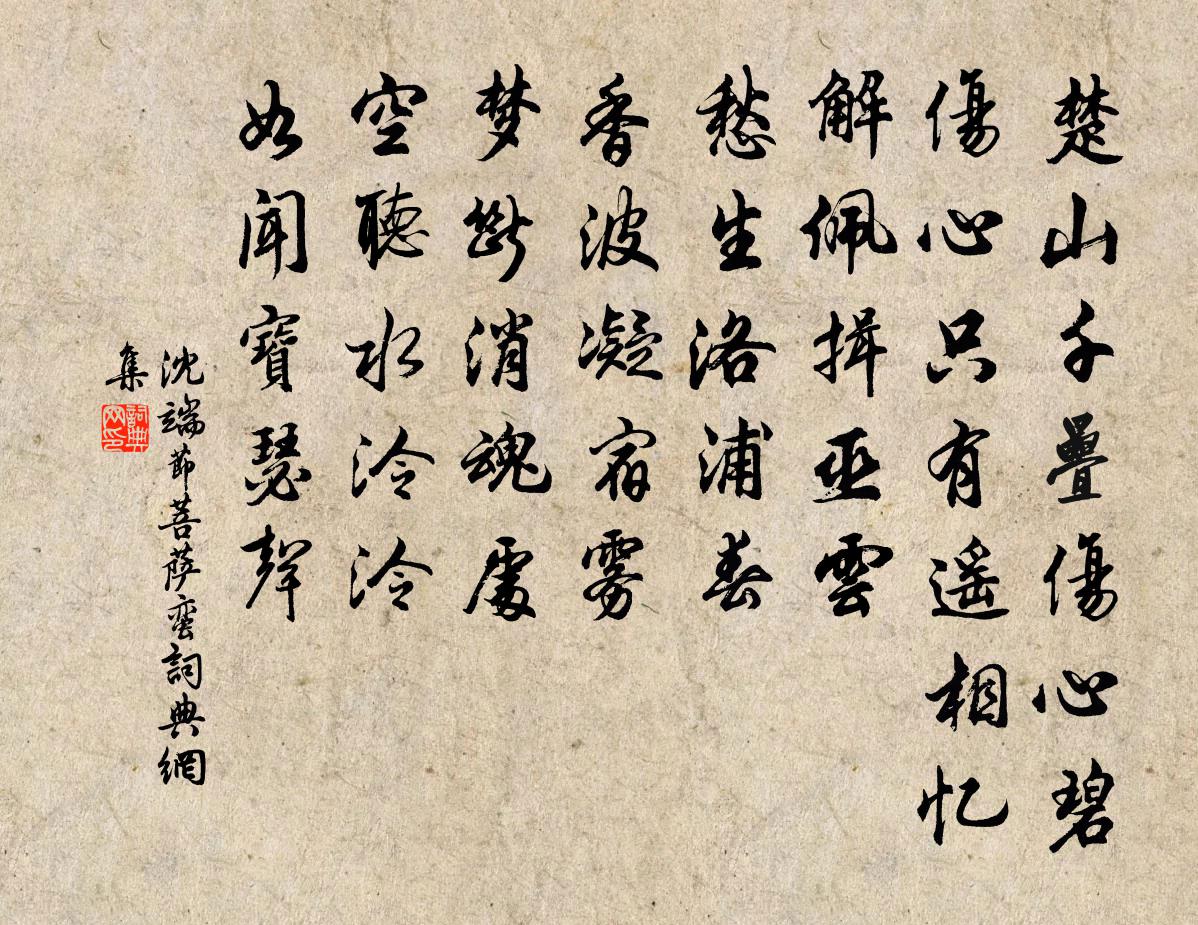 楚山千疊傷心碧
傷心只有遥相忆
解佩揖巫雲
愁生洛浦春
香波凝宿雾
梦斷消魂處
空聽水泠泠
如闻寶瑟聲
沈端節菩萨蛮詞典網
集
詞典網印